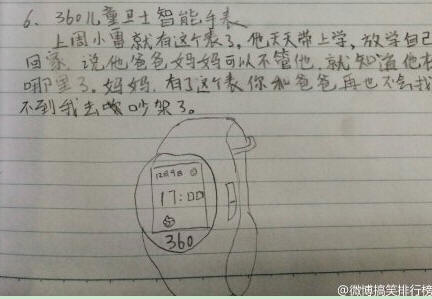 6、360儿童卫士智能手表
上周小雷就有这个表了。他天天带上学，放学自己
回家。说他爸爸妈妈可以不管他，就知道他在
哪里了。妈妈，有了这个表你和爸爸再也不会找
不到我去吵架了。
12月9日
17:00
360
@微博搞笑排行榜